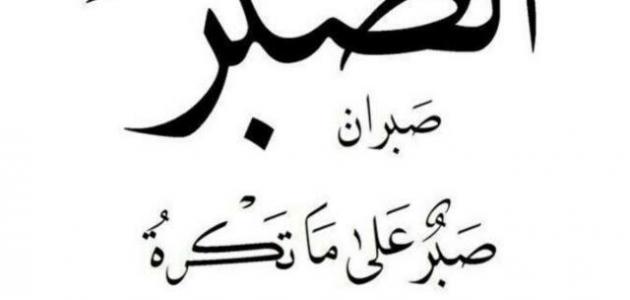 الصبر
صبران
صَبْرٌ عَلَىٰ مَا تَكْرَهُ